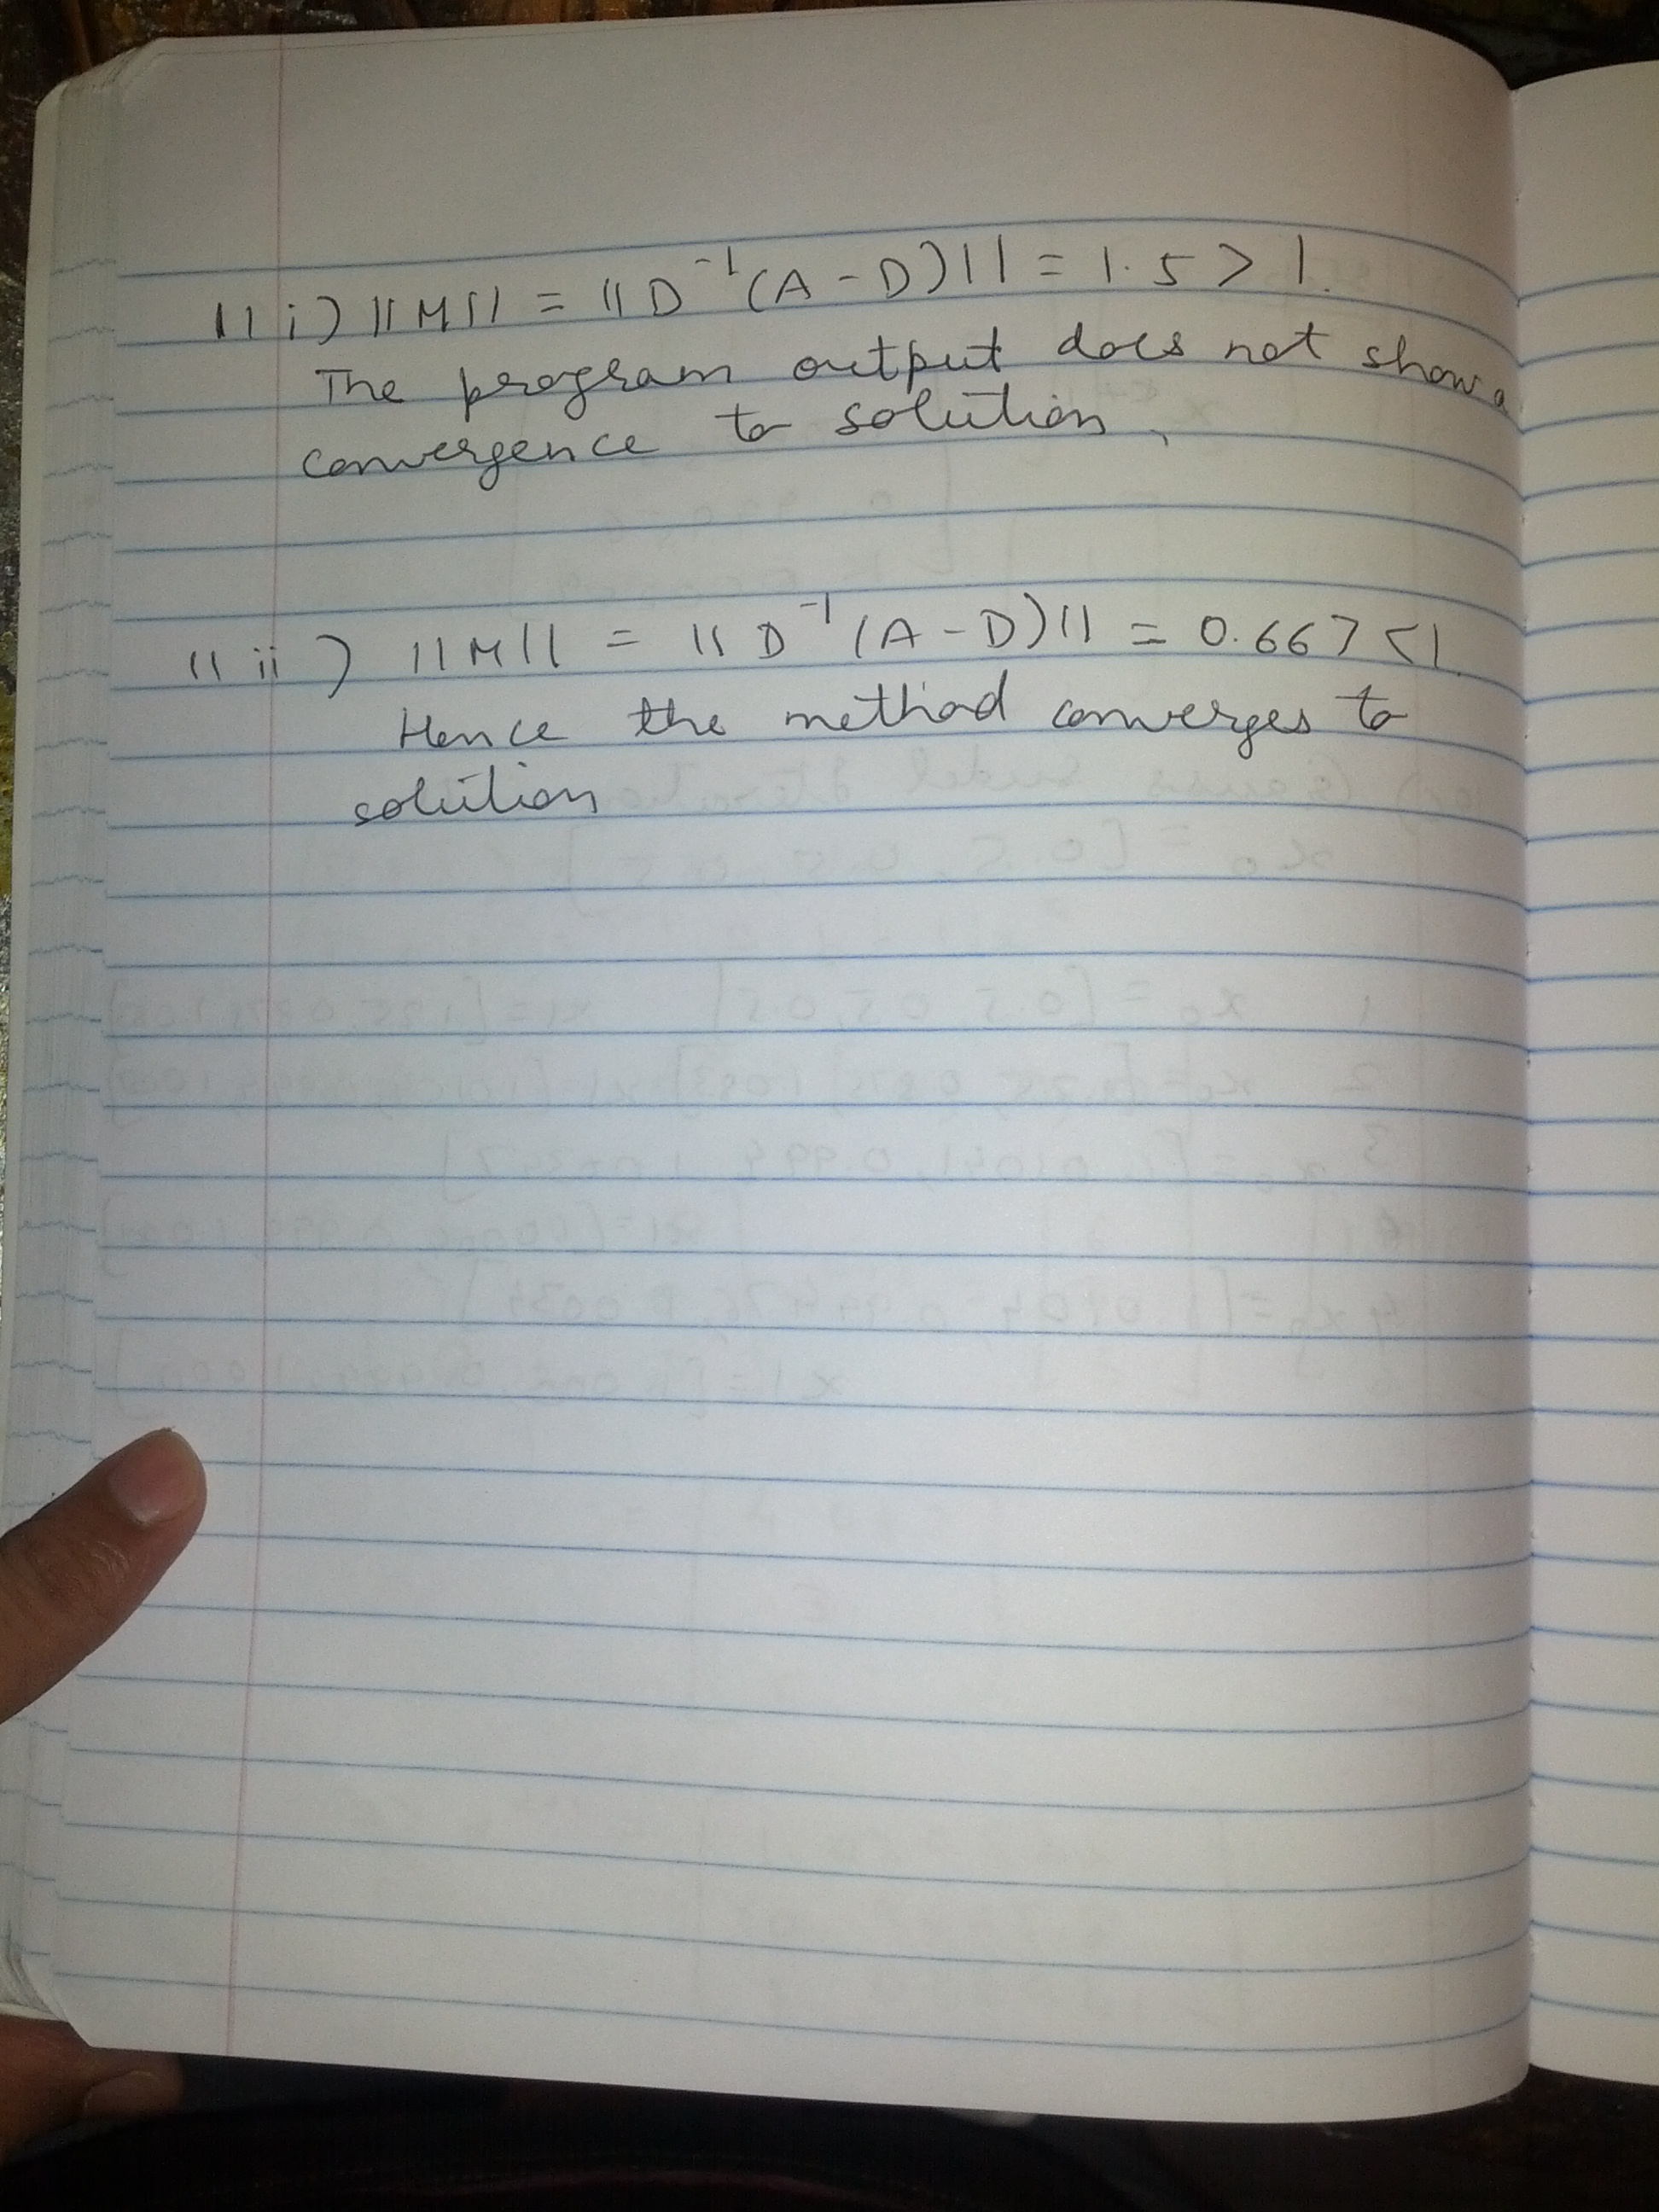 11 i) ||M|| = ||D⁻¹(A-D)|| = 1.5 > 1.
The program output does not show a
convergence to solution,
11 ii) ||M|| = ||D⁻¹(A-D)|| = 0.667 < 1
Hence the method converges to
solution